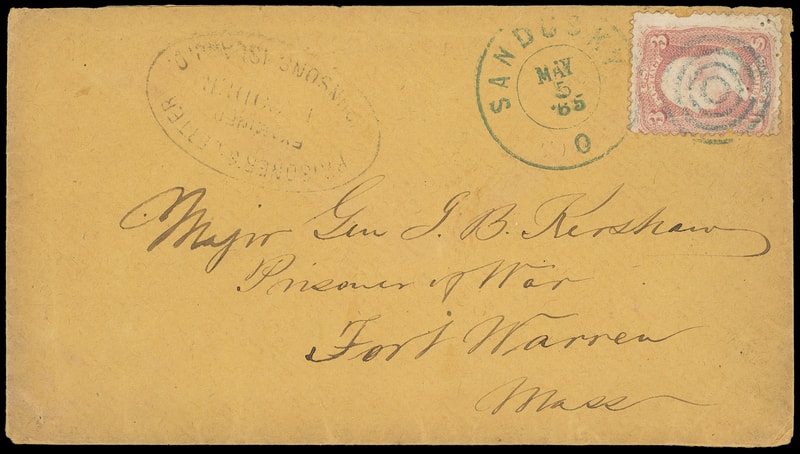 PRISONER'S LETTER
EXAMINED
JOHNSONS ISLAND O.
SANDUSKY
MAY
5
'65
O
3
3
Major Gen J. B. Kershaw
Prisoner of War
Fort Warren
Mass